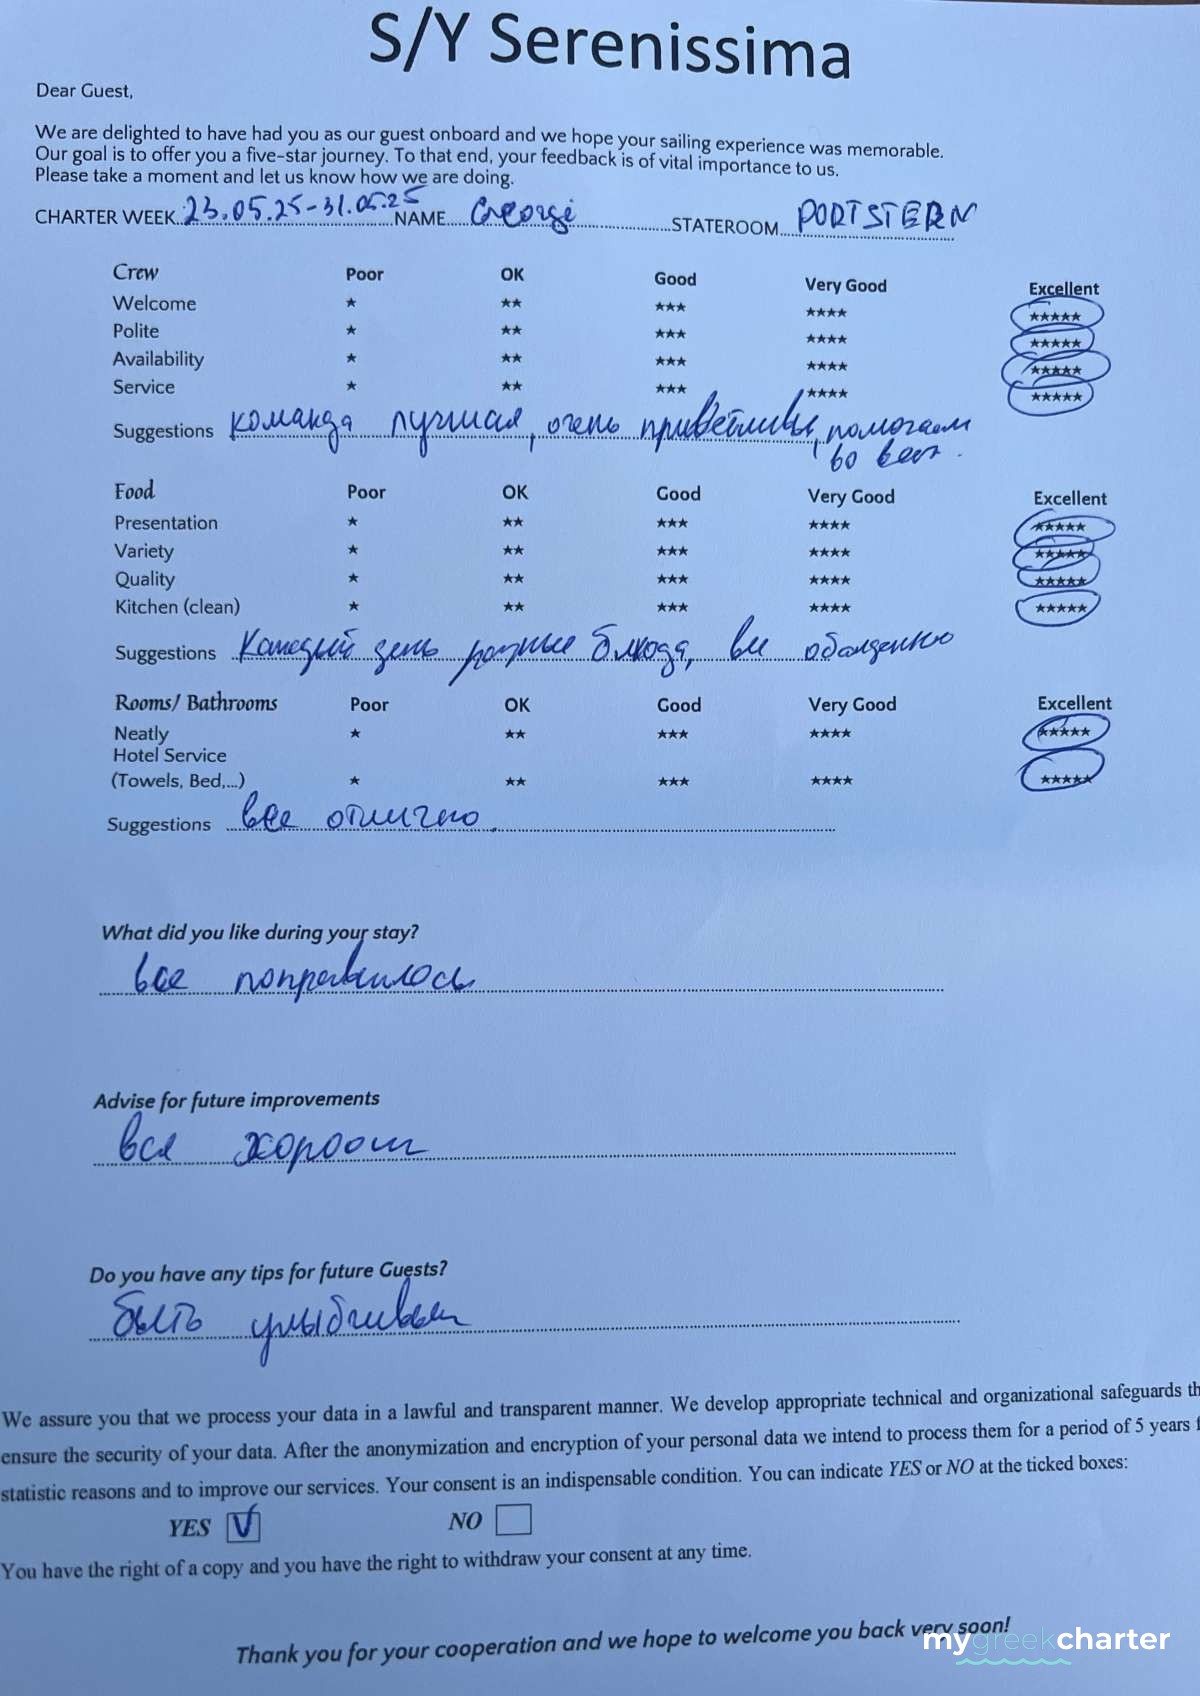 S/Y Serenissima
Dear Guest,
We are delighted to have had you as our guest onboard and we hope your sailing experience was memorable.
Our goal is to offer you a five-star journey. To that end, your feedback is of vital importance to us.
Please take a moment and let us know how we are doing.
CHARTER WEEK 23.05.25-31.05.25 NAME George STATEROOM PORT STERN
Crew Poor OK Good Very Good Excellent
Welcome ★ ★★ ★★★ ★★★★ ★★★★★
Polite ★ ★★ ★★★ ★★★★ ★★★★★
Availability ★ ★★ ★★★ ★★★★ ★★★★★
Service ★ ★★ ★★★ ★★★★ ★★★★★
Suggestions команда лучшая, очень приветливы, помогают
во всем.
Food Poor OK Good Very Good Excellent
Presentation ★ ★★ ★★★ ★★★★ ★★★★★
Variety ★ ★★ ★★★ ★★★★ ★★★★★
Quality ★ ★★ ★★★ ★★★★ ★★★★★
Kitchen (clean) ★ ★★ ★★★ ★★★★ ★★★★★
Suggestions Каждый день разные блюда, все обалденно
Rooms/ Bathrooms Poor OK Good Very Good Excellent
Neatly ★ ★★ ★★★ ★★★★ ★★★★★
Hotel Service
(Towels, Bed,...) ★ ★★ ★★★ ★★★★ ★★★★★
Suggestions все отлично.
What did you like during your stay?
все понравилось
Advise for future improvements
все хорошо
Do you have any tips for future Guests?
быть улыбчивым
We assure you that we process your data in a lawful and transparent manner. We develop appropriate technical and organizational safeguards th
ensure the security of your data. After the anonymization and encryption of your personal data we intend to process them for a period of 5 years f
statistic reasons and to improve our services. Your consent is an indispensable condition. You can indicate YES or NO at the ticked boxes:
YES V NO
You have the right of a copy and you have the right to withdraw your consent at any time.
Thank you for your cooperation and we hope to welcome you back very soon!
mygreekcharter